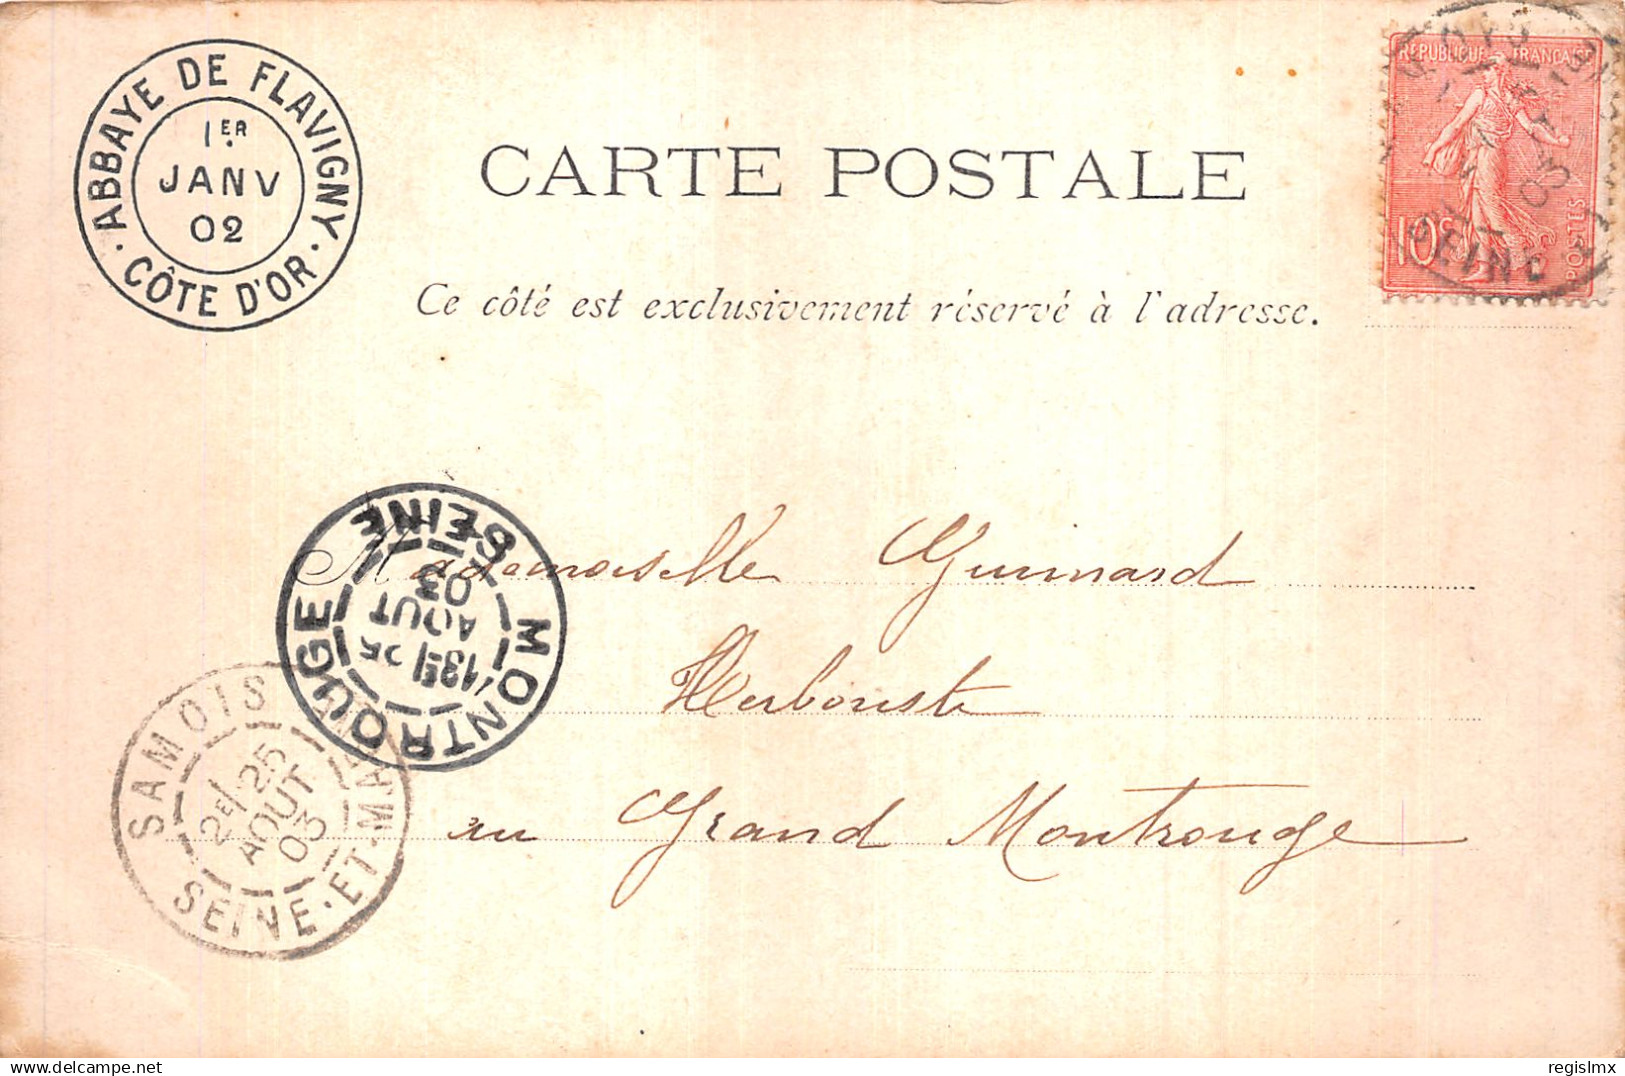 ABBAYE DE FLAVIGNY
1ER
JANV
02
CÔTE D'OR
CARTE POSTALE
REPUBLIQUE FRANÇAISE
10c
POSTES
03
SEINE
Ce côté est exclusivement réservé à l'adresse.
MONTROUGE
13E 25
AOUT
03
SEINE
Mademoiselle Guimard
Herboriste
au Grand Montrouge
SAMOIS
2E 25
AOUT
03
SEINE-ET-MARNE
regislmx